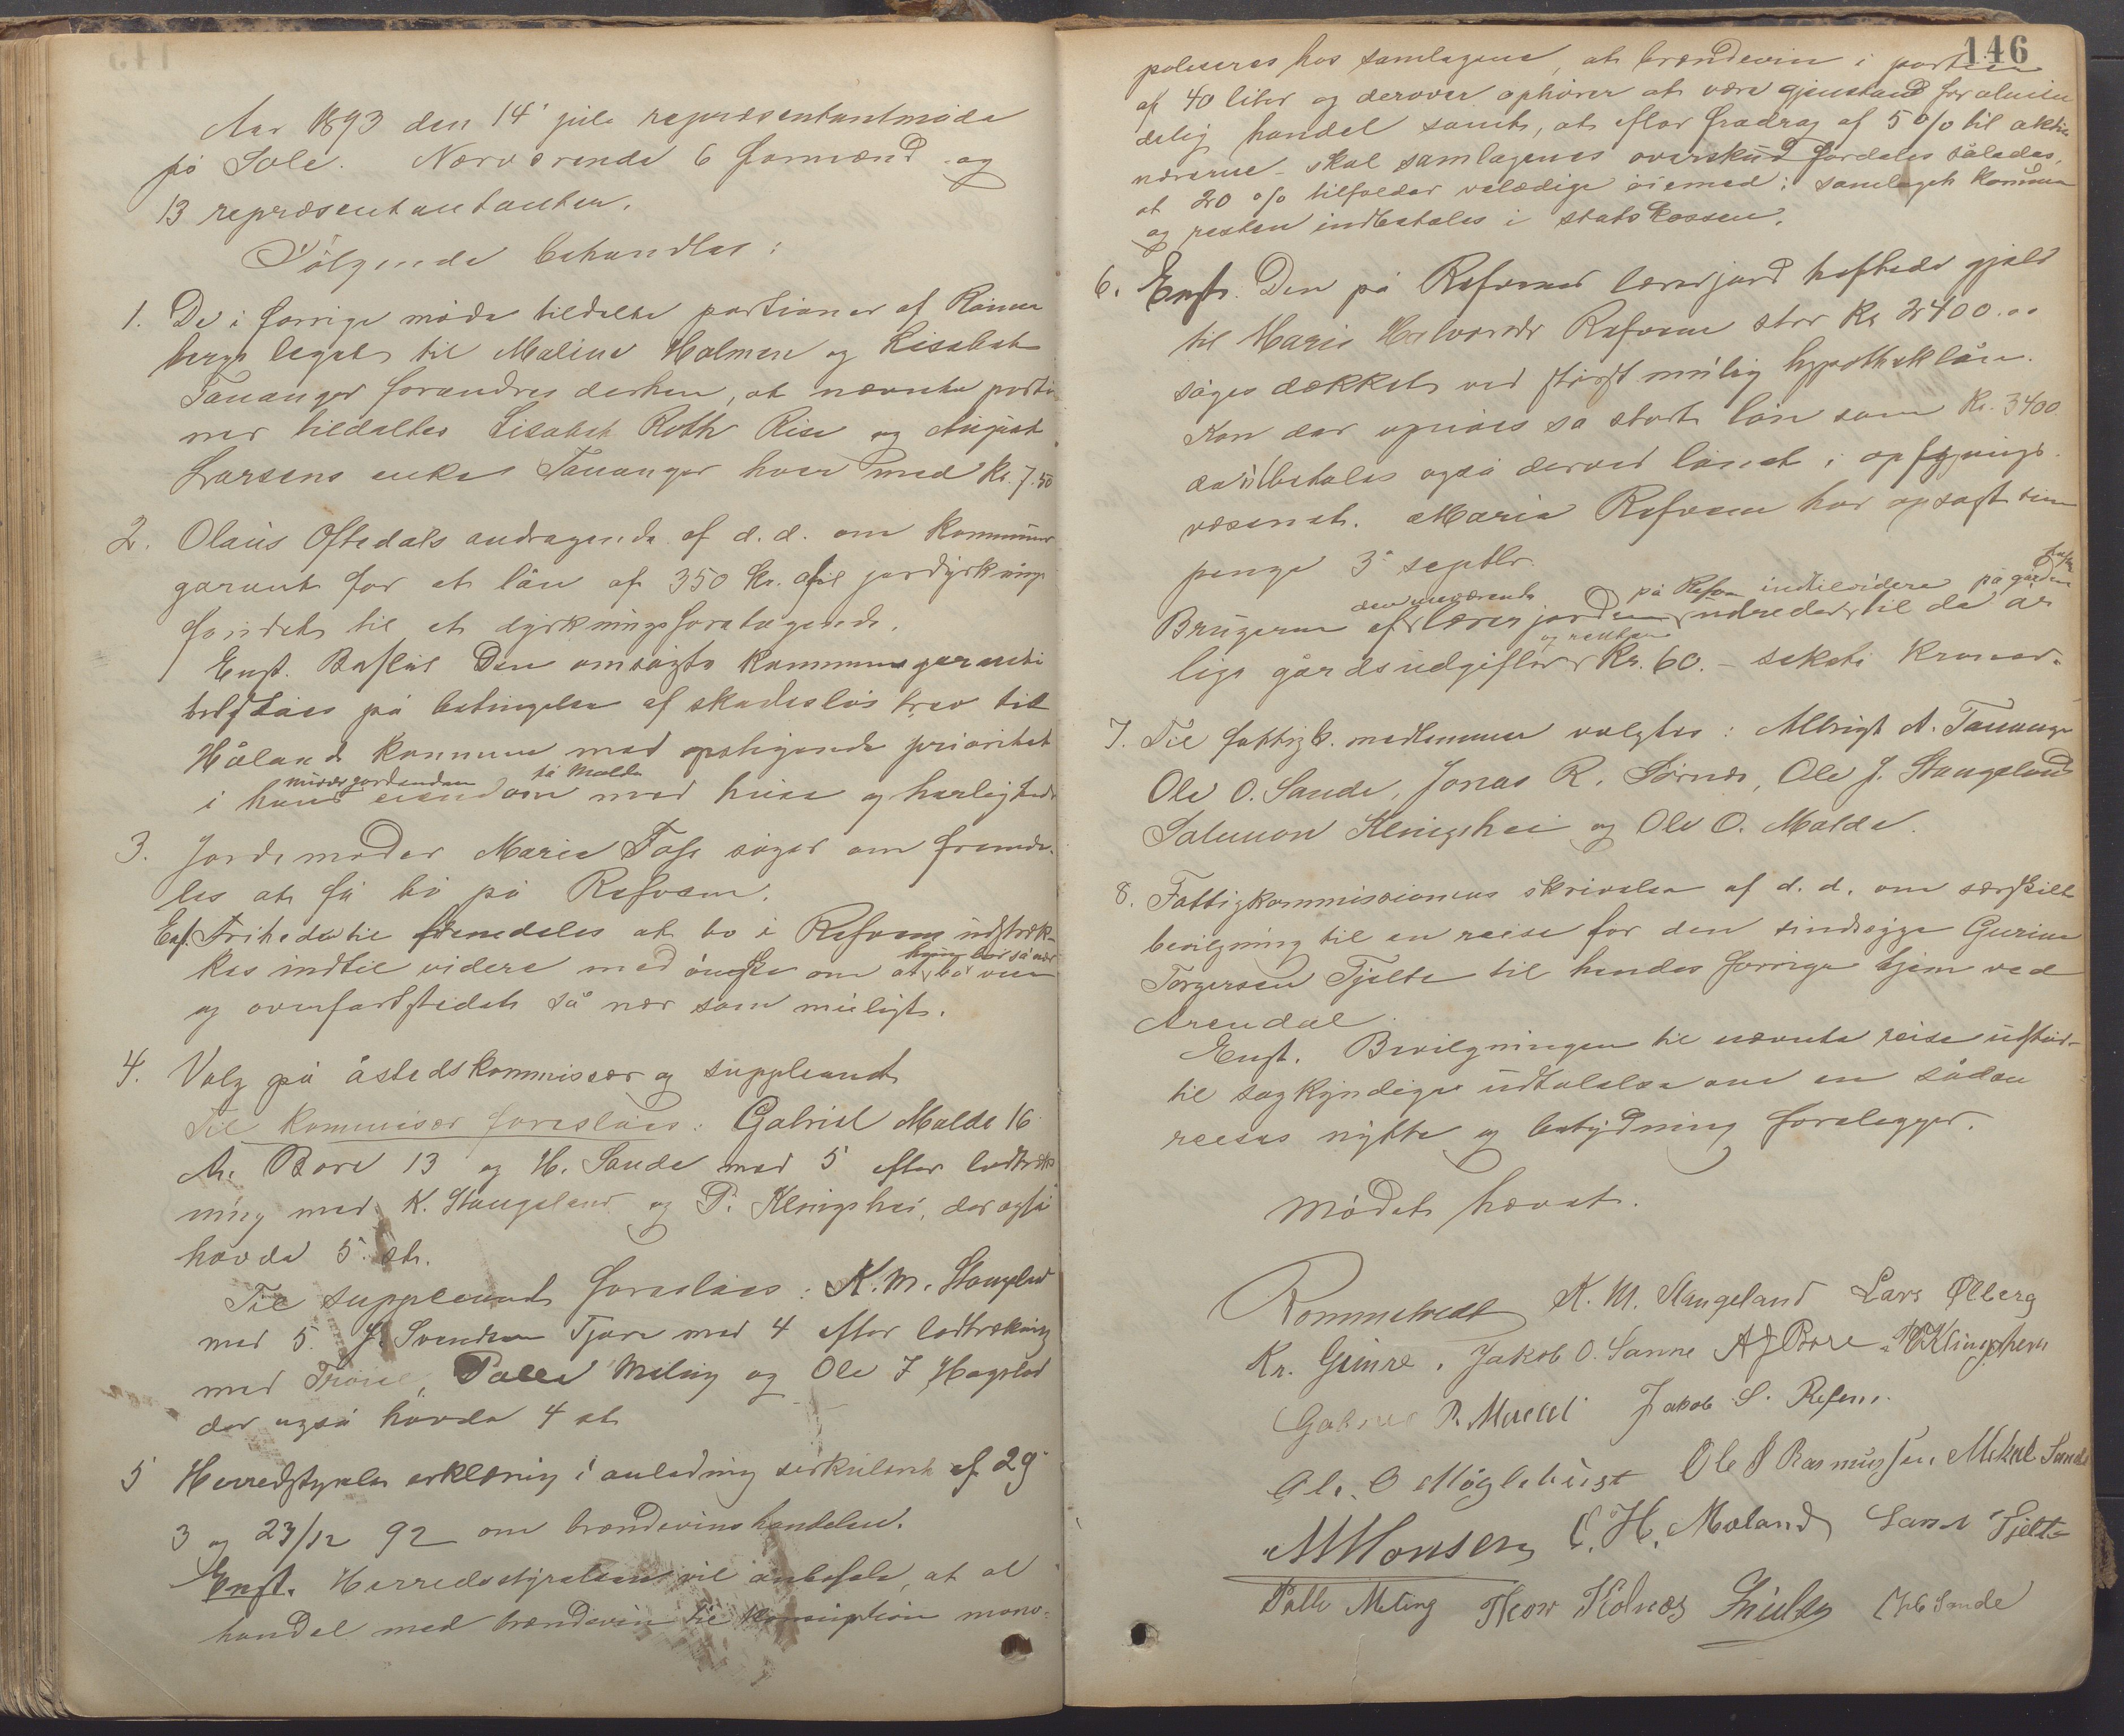 Aar 1893 den 14' juli repræsentantmøde
på Sole. Nærværende 6 formænd og
13 repræsentantanter.
Følgende behandles:
1. De i forrige møde tildelte portioner af
bergs legat til Maline Holmen og Lisabet
Tananger forandres derhen, at nævnte portio
ner tildeltes Lisabet Roth Risa og August
Larsens enke Tananger hver med Kr. 7.50
2. Olaus Oftedals andragende af d.d. om kommune
garanti for et lån af 350 kr. af jordyrknings
fondet til et dyrkningsforetagende.
Enst. Beslut Den omsøgte kommunegaranti
tilståes på betingelse af skadesløs krav til
Hålands kommune med opstigende prioritet
i hans eiendom på Malde med huse og herligheder
3. Jordemoder Maria Foss søger om fremde-
les at få bo på Refsem.
Enst. Friheden til fremdeles at bo i Refsem udstræk-
kes indtil videre med ønske om at hun bor så nær veien
og overfartstedet så nær som muligt.
4. Valg på åstedskommissær og suppleant
Til kommissær foreslåes: Gabriel Malde 16
A. Bore 13 og H. Sande med 5 efter lodtræk
ning med K. Stangeland og P. Klingshei, der også
havde 5 st.
Til suppleant foreslåes: K. M. Stangeland
med 5. J. Svendsen Tjora med 4 efter lodtrækning
med Palle Meling og Ole J Hagelad
der også havde 4 st
5 Herredstyrelse erklæring i anledning sirkulære af 29
3 og 23/12 92 om brændevinshandelen.
Enst. Herredsstyrelsen vil anbefale, at al
handel med brændevin til konsumption mono-
146
poliseres hos samlagene, at brændevin i partier
af 40 liter og derover ophører at være gjenstand for almin
delig handel samt, at efter fradrag af 5 % til aktio
nærerne skal samlagenes overskud fordeles således,
at 20 % tilfalder veldædige øiemed i samlagets kommune
og resten indbetales i statskassen.
6. Enst. Den på Refsnes lærerjord heftede gjæld
til Maria Halvorsdr Refsem stor Kr 2400.00
søges dækket ved størst mulig hypotheklån.
Kan der opnåes så stort lån som Kr. 3400
da indbetales også derved lånet i oplysnings
væsenet. Maria Refsem har opsagt sine
penge 3' septbr.
den nuværende på Refsn indtilvidere på gården
Brugeren af lærerjorden udreder til de
og renten
lige gårdsudgifter Kr. 60. – seksti kroner.
7. Til fattigk. medlemmer valgtes: Albrigt A. Tananger
Ole O. Sande, Jonas R. Sørnes, Ole J. Stangeland
Salomon Klingshei og Ole O. Malde.
8. Fattigkommissionens skrivelse af d.d. om særskilt
bevilgning til en reise for den sindssyge Gurine
Torgersen Tjelta til hendes forrige hjem ved
Arendal.
Enst. Bevilgningen til nævnte reise udstår
til sagkyndiges udtalelse om en sådan
reises nytte og betydning forelægger.
Mødet hævet.
Rommetvedt K. M. Stangeland Lars Ølberg
Kr. Gimre. Jakob O. Sømme A J Bore P Klingsheim
Gabriel P. Malde Jakob S. Refsnes.
Ole O Møglebust Ole J Rasmussen Mikal Sande
M Monsen C. H. Meland Tjelta
Palle Meling Thor Kolnes Sande